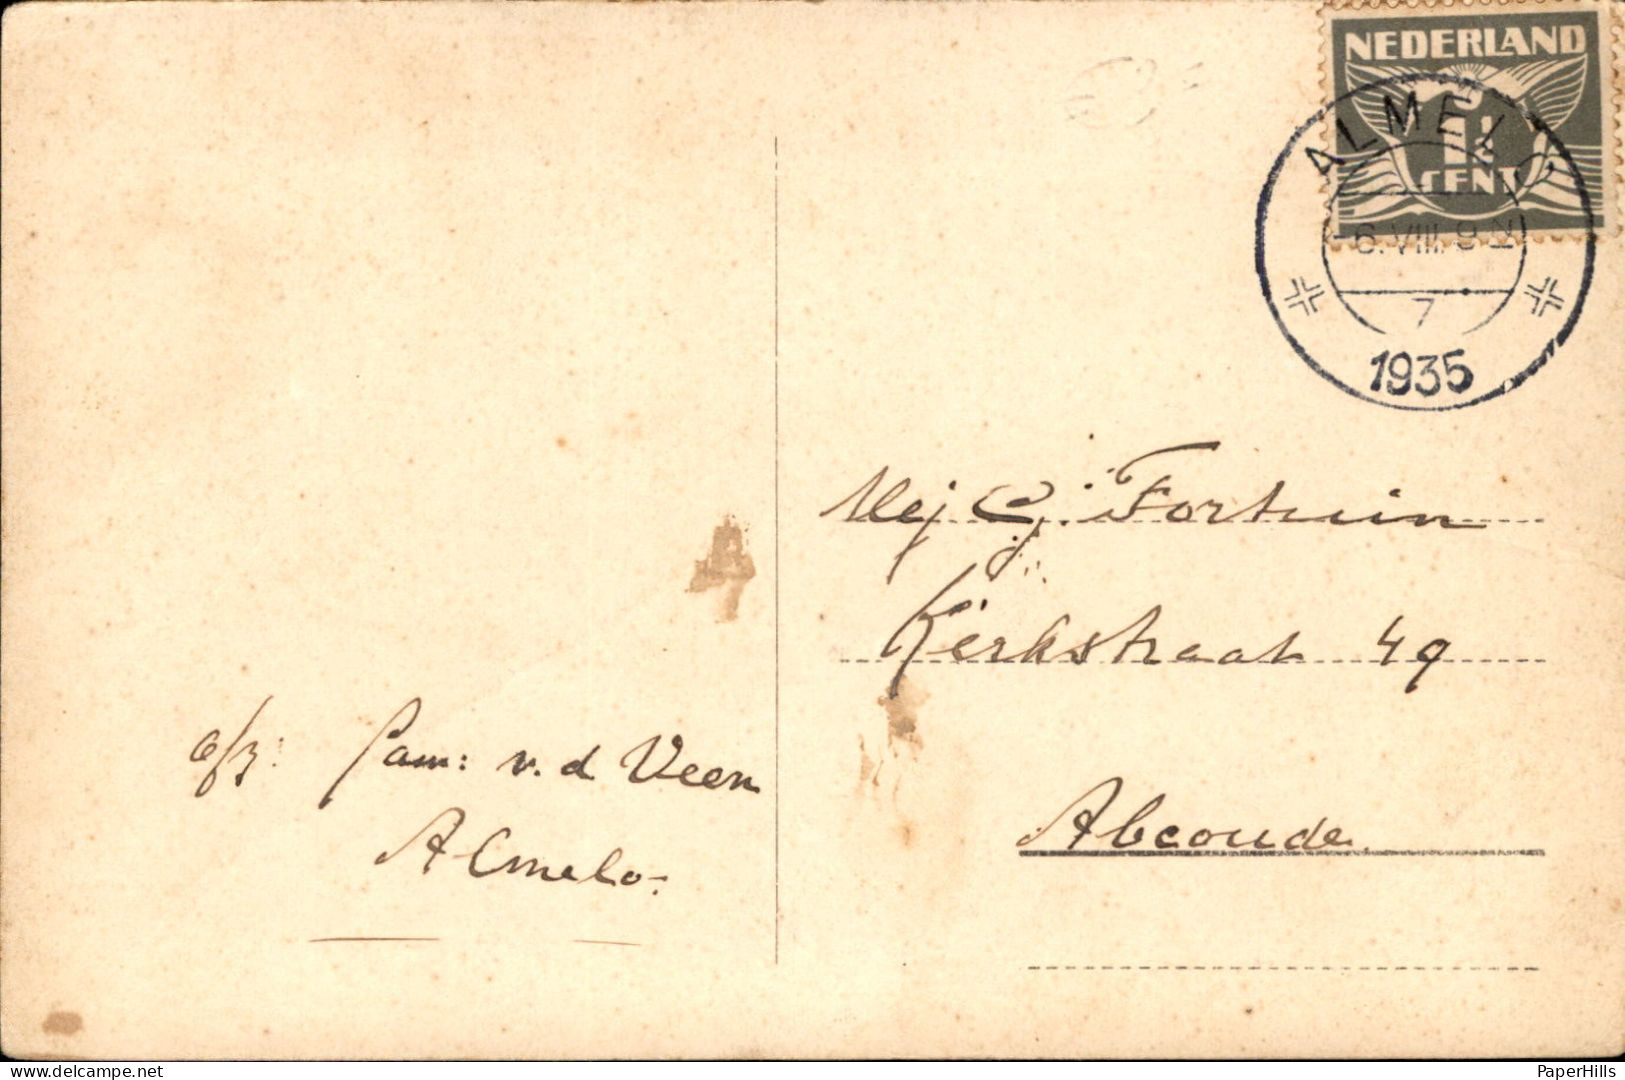 NEDERLAND
1½
CENT
ALMELO
6.VIII.9
7
1935
Mej C. Fortuin
Kerkstraat 49
Abcoude.
afz: Fam: v. d Veen
Almelo.
www.delcampe.net
PaperHills